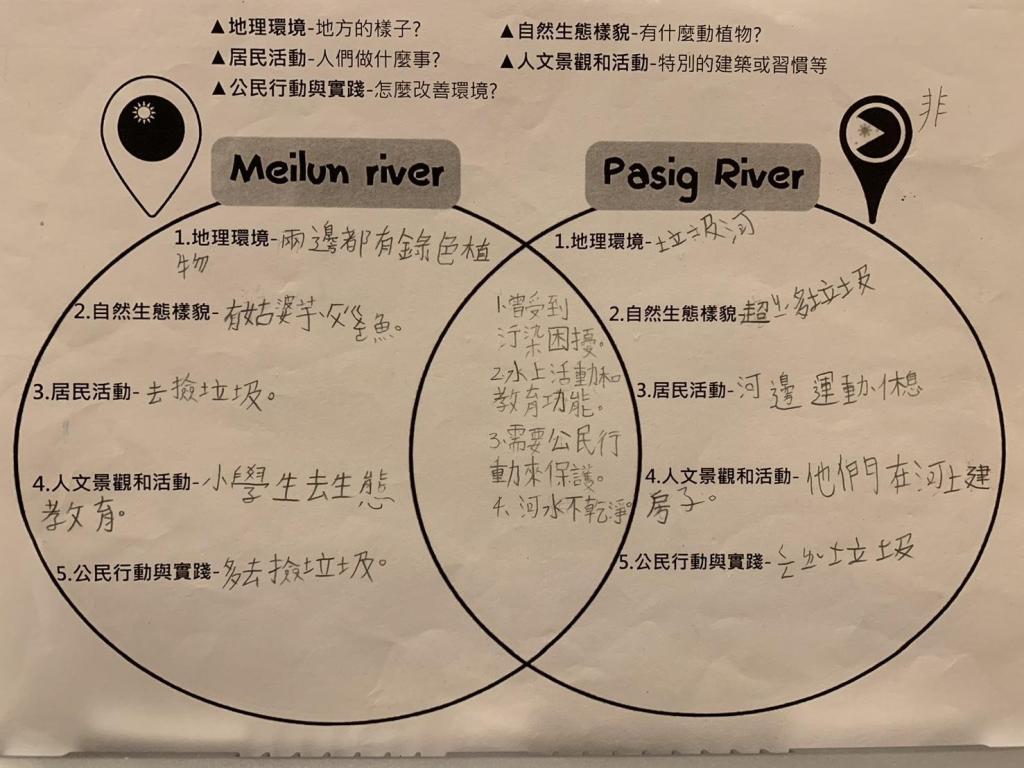 ▲地理環境-地方的樣子?
▲自然生態樣貌-有什麼動植物?
▲居民活動-人們做什麼事?
▲人文景觀和活動-特別的建築或習慣等
▲公民行動與實踐-怎麼改善環境?
非
Meilun river
Pasig River
1.地理環境-兩邊都有綠色植
物
2.自然生態樣貌-有姑婆芋 魚。
3.居民活動-去撿垃圾。
4.人文景觀和活動-小學生去生態
教育。
5.公民行動與實踐-多去撿垃圾。
1.曾受到
汙染困擾。
2.水上活動和
教育功能。
3.需要公民行
動來保護。
4.河水不乾淨。
1.地理環境-垃圾河
2.自然生態樣貌-超 多垃圾
3.居民活動-河邊運動、休息
4.人文景觀和活動-他們在河上建
房子。
5.公民行動與實踐- 垃圾